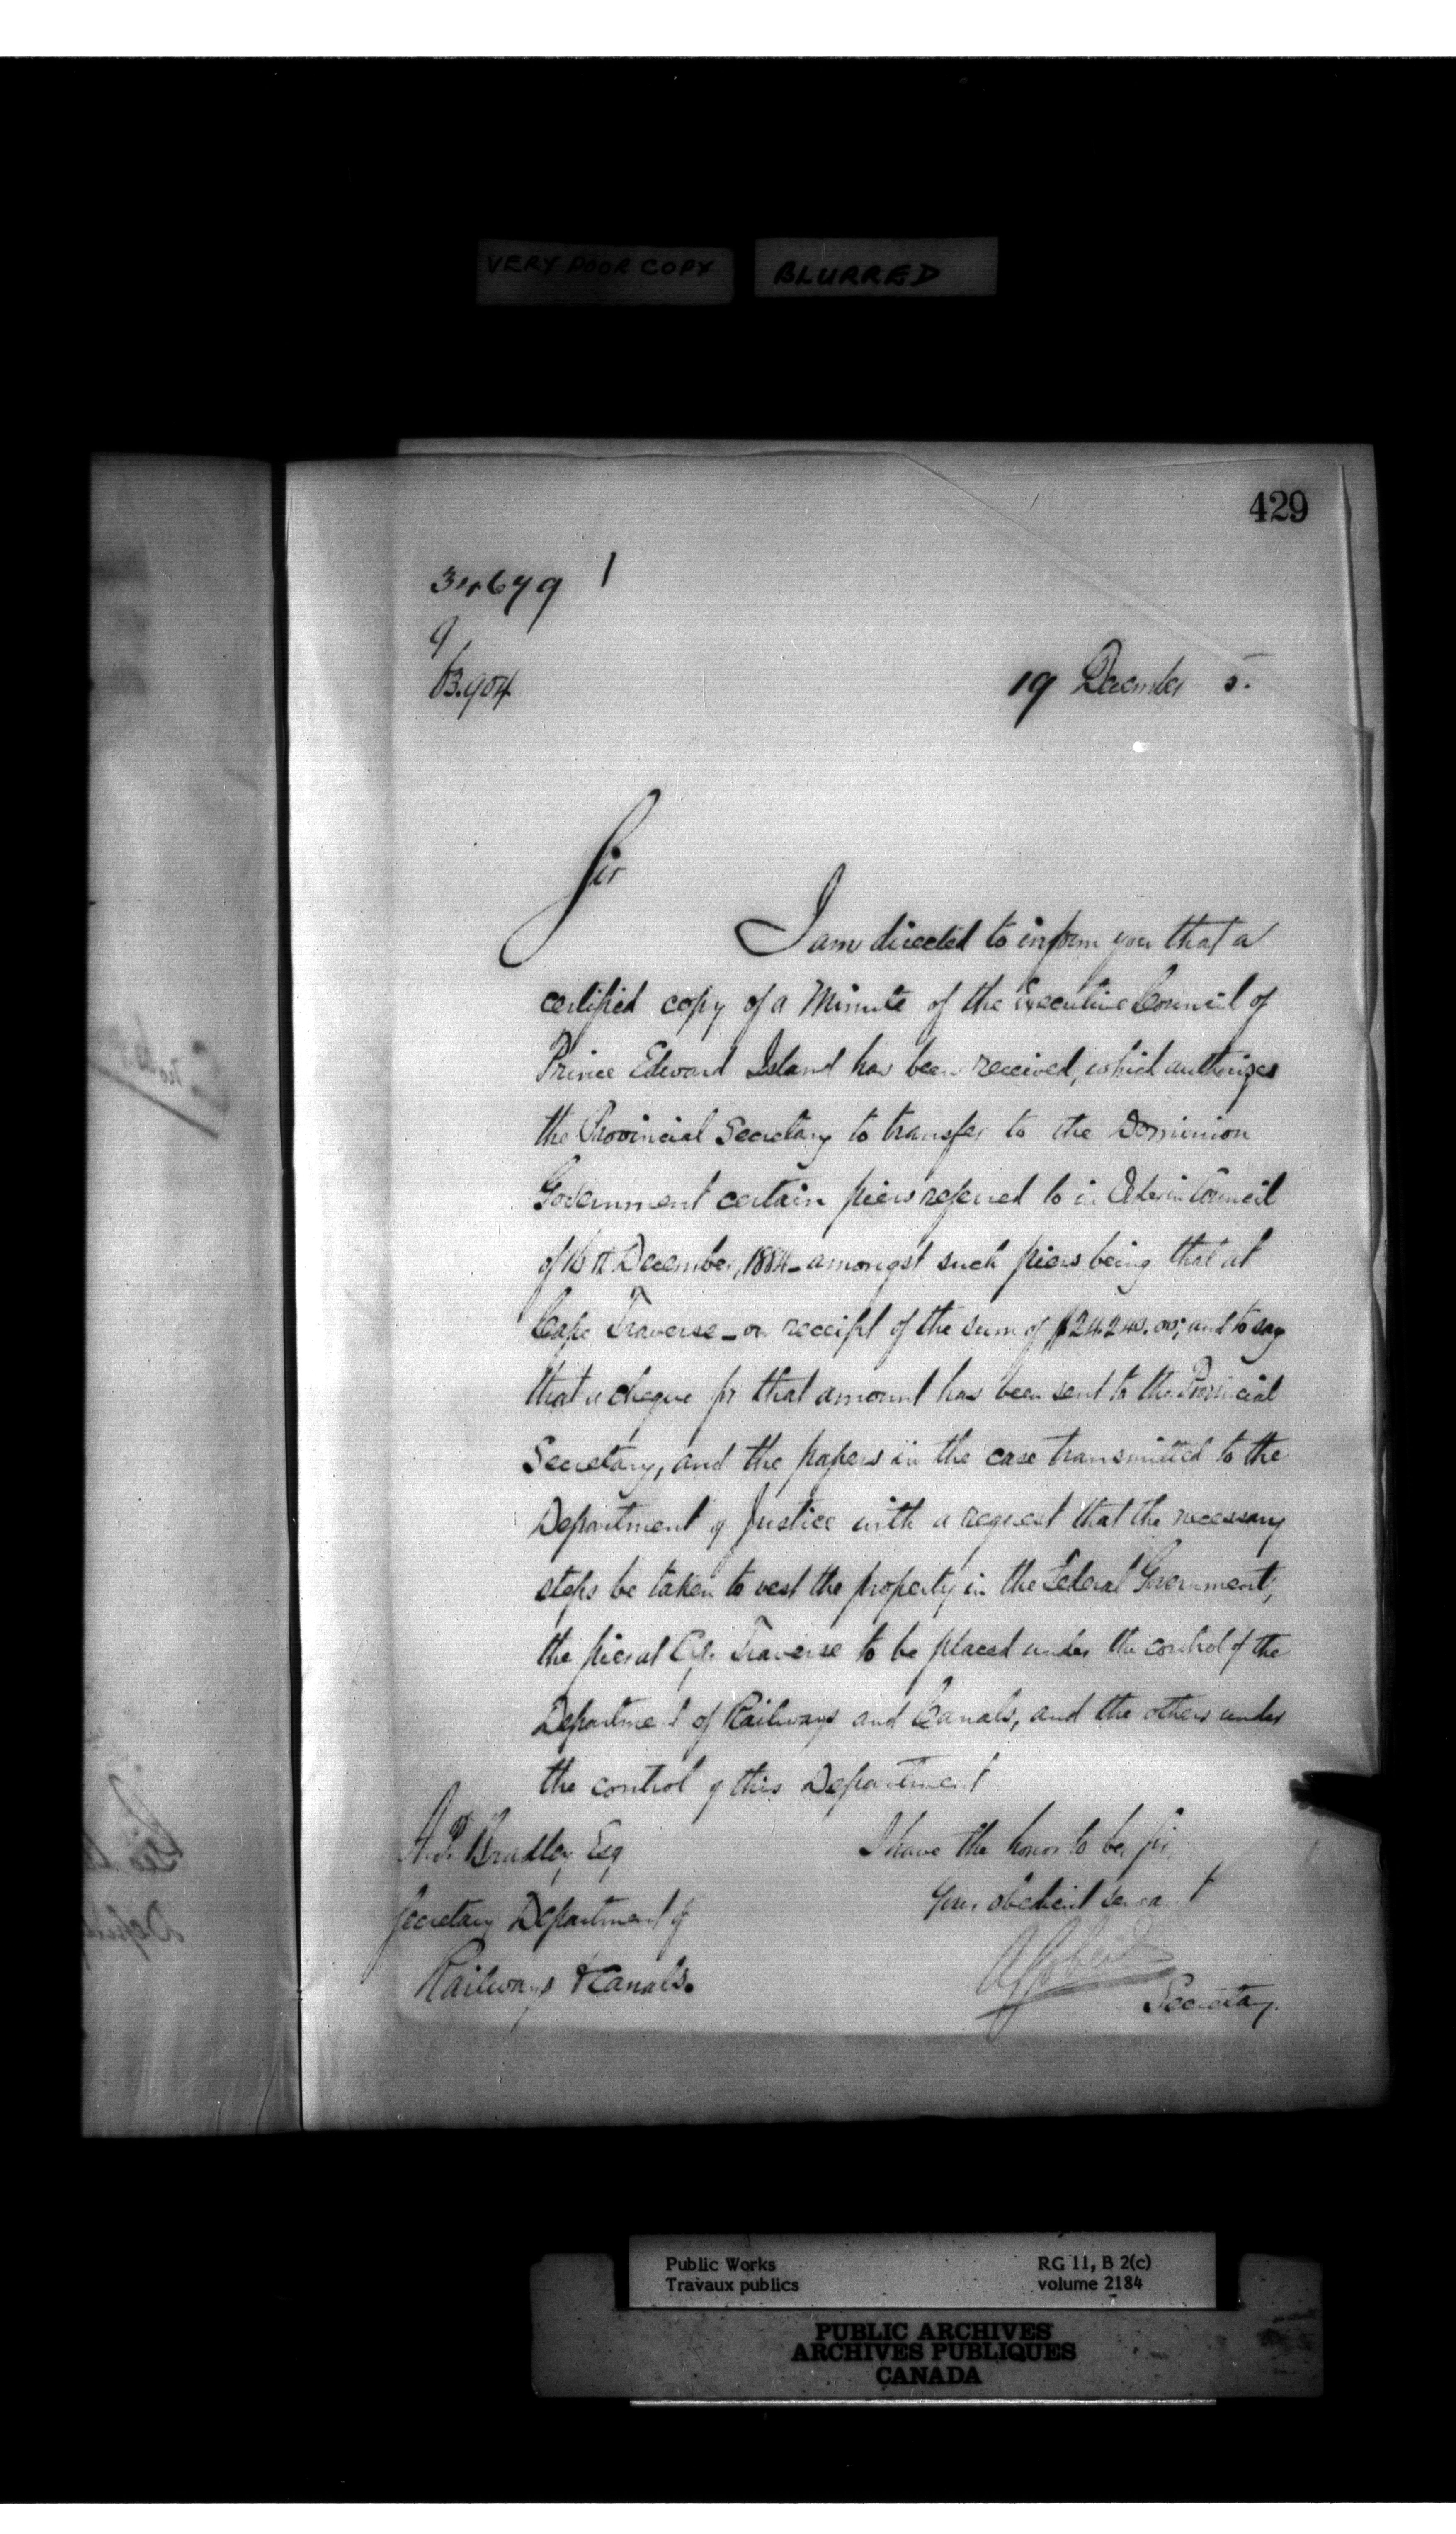 VERY POOR COPY BLURRED
429
34679 1
63.904
19 December 5.
Sir
I am directed to inform you that a
certified copy of a Minute of the Executive Council of
Prince Edward Island has been received, which authorizes
the Provincial Secretary to transfer to the Dominion
Government certain piers referred to in Order in Council
of 16th December, 1884 - amongst such piers being that at
Cape Traverse - on receipt of the sum of and to say
that a cheque for that amount has been sent to the Provincial
Secretary, and the papers in the case transmitted to the
Department of Justice with a request that the necessary
steps be taken to vest the property in the Federal Government,
the pier at Cape Traverse to be placed under the control of the
Department of Railways and Canals, and the others under
the control of this Department
I have the honor to be, Sir
Your obedient servant
Secretary.
A.P. Bradley Esq
Secretary Department of
Railways & Canals.
Public Works RG 11, B 2(c)
Travaux publics volume 2184
PUBLIC ARCHIVES
ARCHIVES PUBLIQUES
CANADA